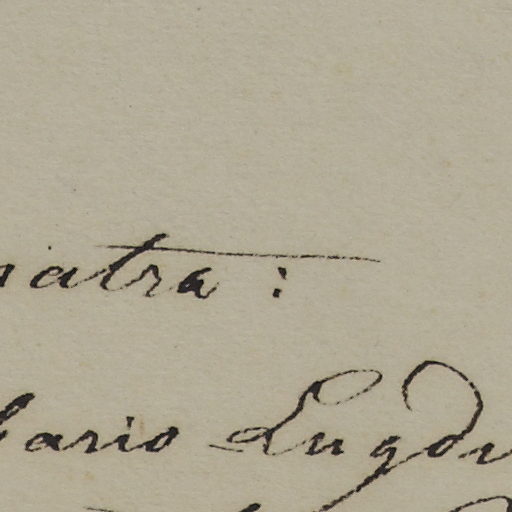 matra:
bario Lugdu